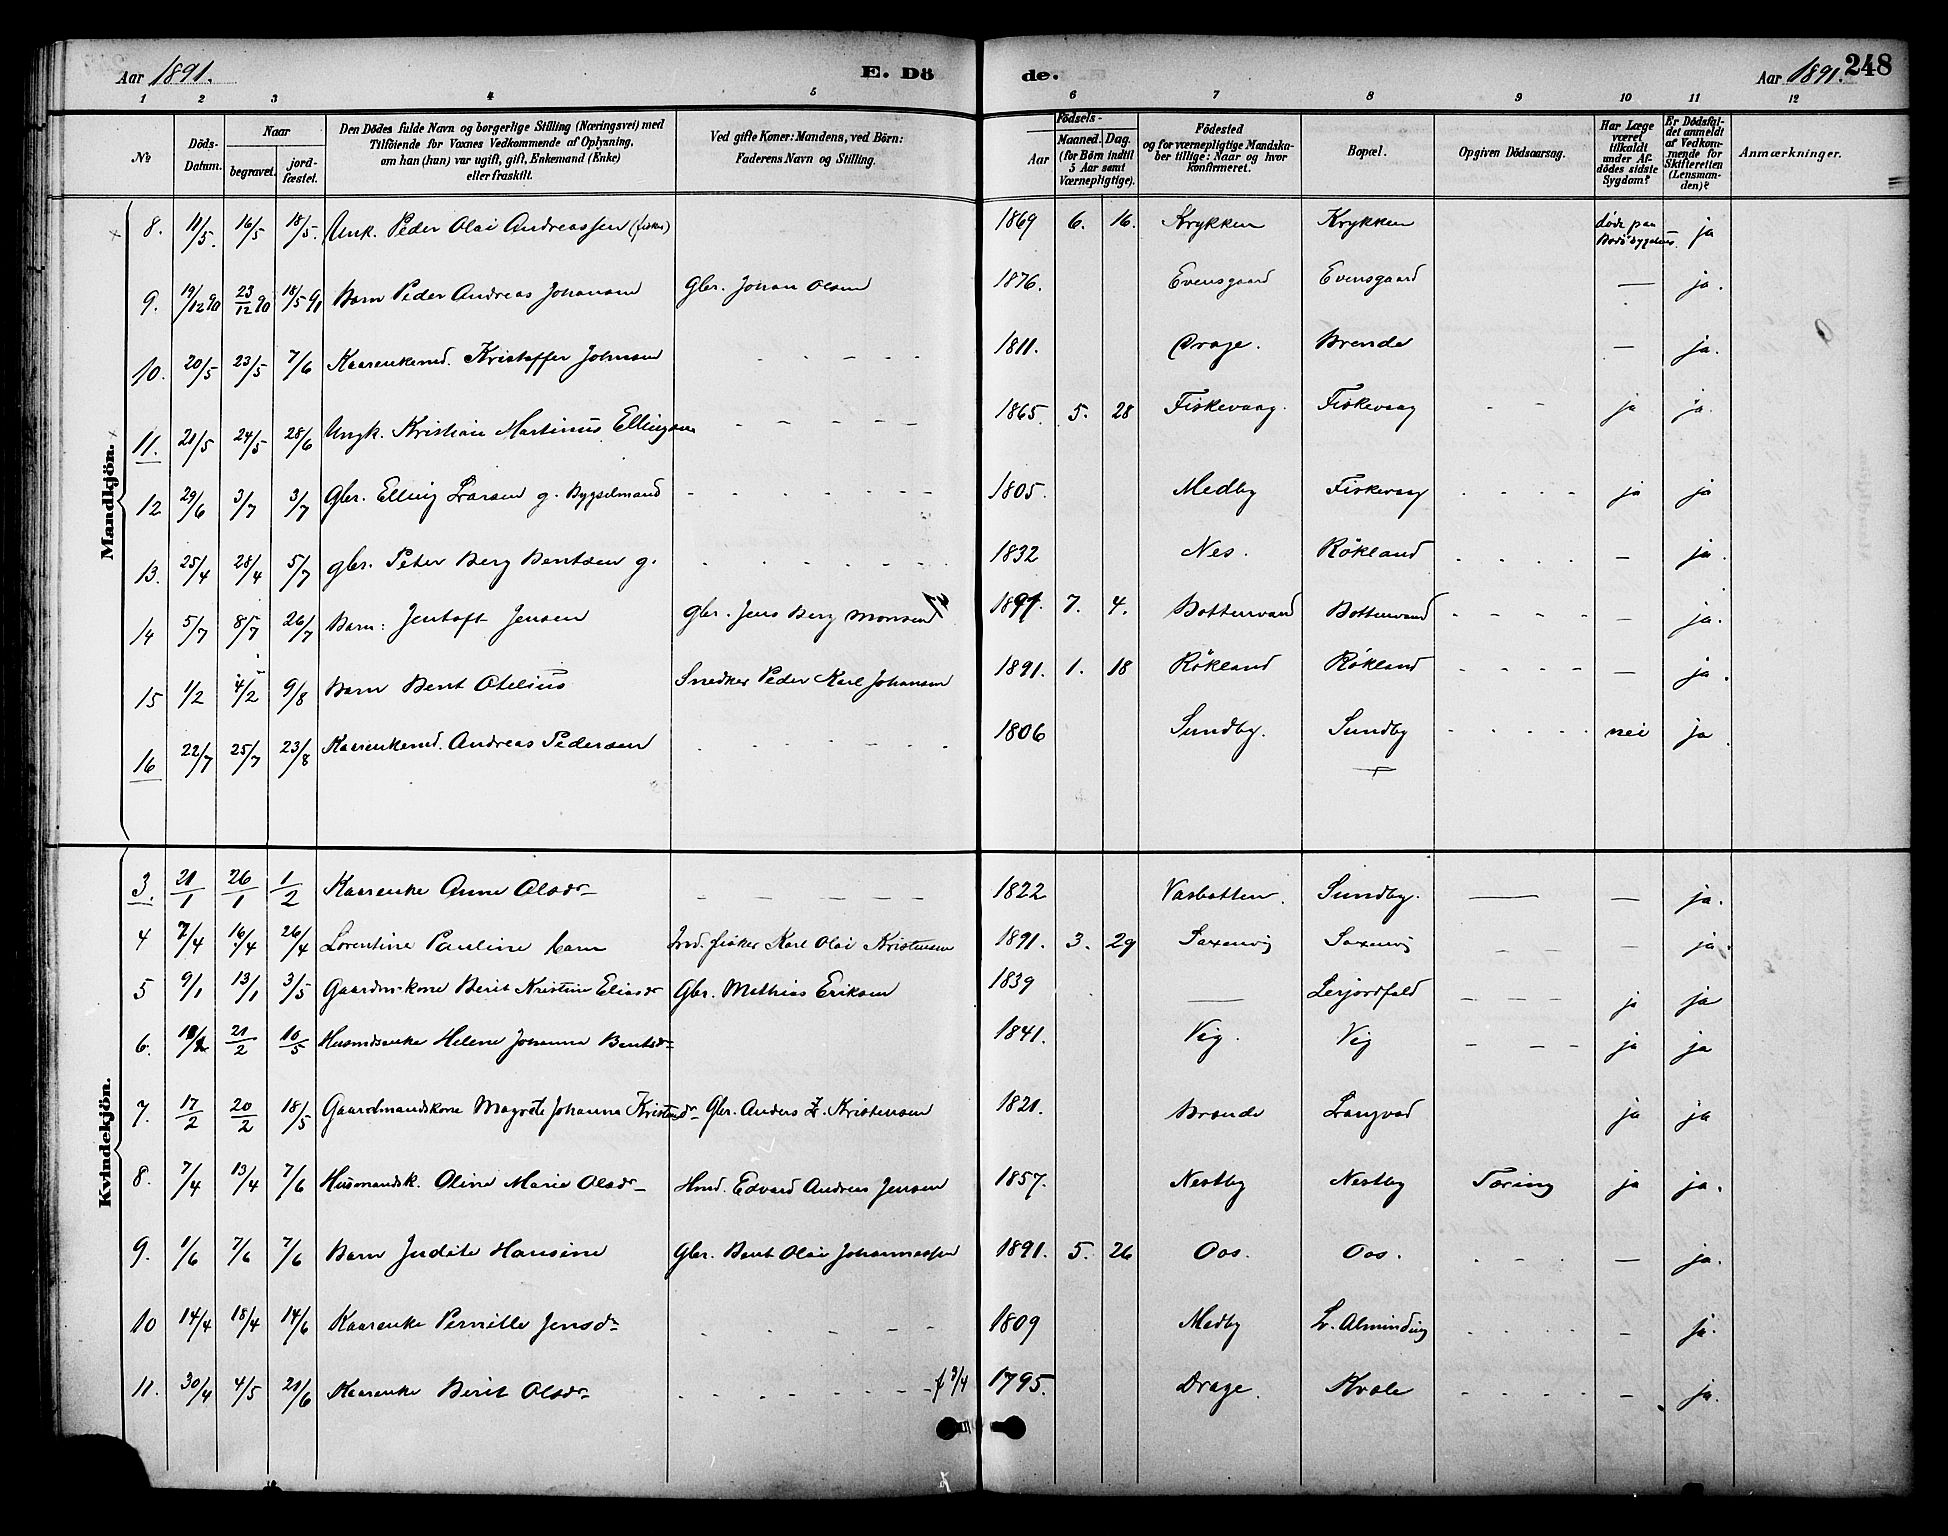 Aar 1891. E. Dö de. Aar 1891. 248
1 2 3 4 5 6 7 8 9 10 11 12
No
Döds-Datum.
Naar
begravet.
jord-fæstet.
Den Dödes fulde Navn og borgerlige Stilling (Næringsvei) med
Tilföiende for Voxnes Vedkommende af Oplysning,
om han (hun) var ugift, gift, Enkemand (Enke)
eller fraskilt.
Ved gifte Koner: Mandens, ved Börn:
Faderens Navn og Stilling.
Födsels-
Aar
Maaned. Dag.
(for Börn indtil
5 Aar samt
Værnepligtige).
Födested
og for værnepligtige Mandska-
ber tillige: Naar og hvor
konfirmeret.
Bopæl.
Opgiven Dödsaarsag.
Har Læge
været
tilkaldt
under Af-
dödes sidste
Sygdom?
Er Dödsfal-
det anmeldt
af Vedkom-
mende for
Skifteretten
(Lensman-
den)?
Anmærkninger.
Mandkjön.
8. 11/5. 16/5 18/5. Unk. Peder Olai Andreassen (fisker) 1869 6. 16. Krykken Krykken döde paa Bodö sygehus. ja
9. 19/12 90 23/12 90 18/5 91 Barn Peder Andreas Johansen Gbr. Johan Olsen 1876. Evensgaard Evensgaard — ja.
10. 20/5 23/5 7/6 Kaarenkemd. Kristoffer Johnsen - - - - 1811. Drage. Brende — ja.
11. 21/5 24/5 28/6 Ungk. Kristian Martinus Ellingsen - - - - 1865. 5. 28 Fiskevaag. Fiskevaag - - ja ja.
12 29/6 3/7 3/7 Gbr. Elling Larsen g. Bygselmand - - - - 1805. Medby Fiskevaag - - - - ja ja
13. 25/4 28/4 5/7 gbr. Peter Berg Bentsen g. - - - - 1832 Nes. Rökland - - - - — ja.
14 5/7 8/7 26/7 Barn: Jentoft Jensen Gbr. Jens Berg Monsen 1891. 7. 4. Bottenvand Bottenvand - - - - — ja.
15 1/2 4/2 9/8 Barn Bent Otelius Snedker Peder Karl Johansen 1891. 1. 18 Rökland Rökland - - - - — ja.
16 22/7 25/7 23/8 Kaarenkemd. Andreas Pedersen - - - - 1806 Sundby. Sundby - - - - nei ja
Kvindekjön.
3. 21/1 26/1 1/2 Kaarenke Anne Olsdr - - - - 1822 Vasbotten. Sundby. — — ja.
4 7/4 16/4 26/4 Lorentine Pauline barn Ind. fisker Karl Olai Kristensen 1891. 3. 29 Saxenvig Saxenvig - - — ja.
5 9/1 13/1 3/5 Gaardm-kone Berit Kristine Eliasdr Gbr. Mathias Eriksen 1839 — Lerjordfald - - - - ja ja
6. 21/2 10/5 Husmdsenke Helene Johanna Bentsdr 1841. Vig. Vig - - - ja ja
7. 17/2 20/2 18/5 Gaardmandskone Magrete Johanna Gbr. Anders Z. Kristensen 1821. Brende Langvad ja ja
8. 7/4 13/4 7/6 Husmandsk. Oline Marie Olsdr Hmd. Edvard Andreas Jensen 1857. Nestby Nestby Tæring ja ja.
9. 1/6 7/6 7/6 Barn Judite Hansine Gbr. Bent Olai Johannessen 1891. 5. 26 Oos. Oos. - - - - — ja.
10 14/4 18/4 14/6 Kaarenke Pernille Jensdr - - - - 1809 Medby L. Alminding - - - - — ja.
11. 30/4 4/5 21/6 Kaarenke Berit Olsdr - - - - f 9/4 1795. Drage. Kvale - - - - — ja.